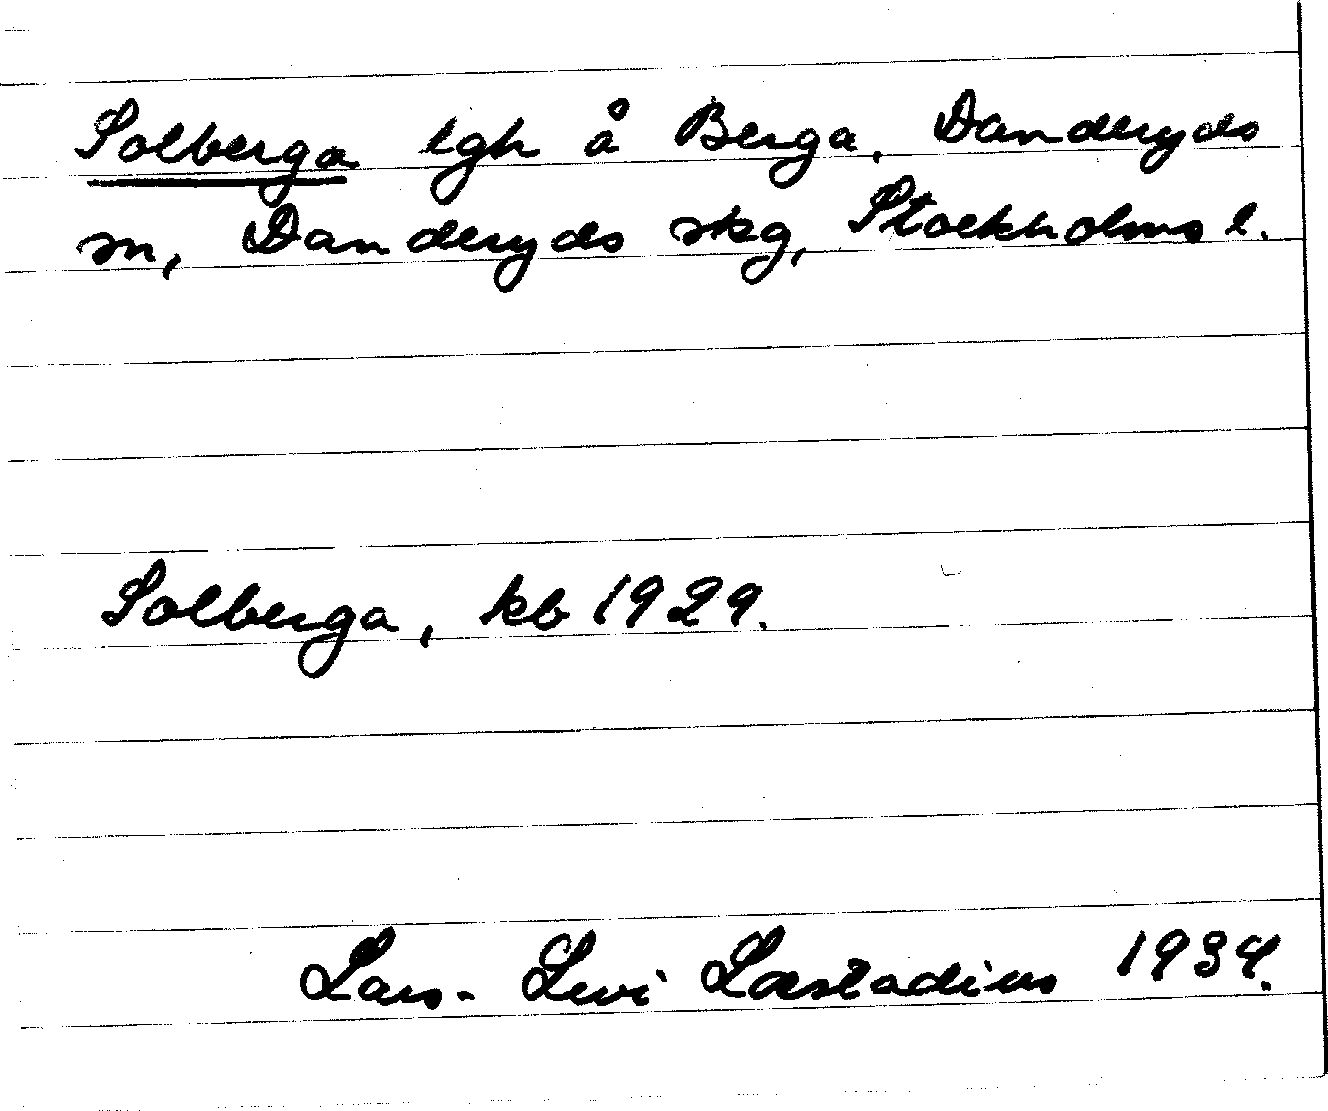 Solberga lgh å Berga, Danderyds
sn, Danderyds skg, Stockholms l.
Solberga, kb 1929.
Lars-Levi Læstadius 1934.